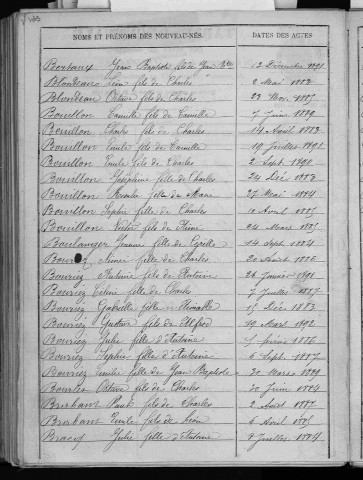 NOMS ET PRÉNOMS DES NOUVEAU-NÉS. DATES DES ACTES
Bertaux Jean Baptiste fils de Jean Bte 12 Décembre 1891
Blondeau Léon fils de Charles 2 Mai 1882
Blondeau Octave fils de Charles 23 Nov. 1887
Bouillon Camille fils de Camille 7 Juin 1889
Bouillon Charles fils de Charles 14 Avril 1883
Bouillon Emile fils de Camille 19 Juillet 1891
Bouillon Emile fils de Charles 2 Sept. 1890
Bouillon Joséphine fille de Charles 24 Déc. 1888
Bouillon fille de 27 Mai 1884
Bouillon Sophie fille de Charles 10 Avril 1885
Bouillon fils de 24 Mars 1885
Boulanger Jeanne fille de Cyrille 14 Sept. 1884
fille de Charles 20 Août 1886
Bourriez fils de Antoine 28 Janvier
Bourriez Céline fille de Charles 7 Juillet 1887
Bourriez Gabrielle fille 15 Déc. 1883
Bourriez Gustave fils de Alfred 19 Mars 1892
Bourriez Julie fille d'Antoine 1886
Bourriez Sophie fille d'Antoine 6 Sept. 1887
Bourriez Emilie fille de Jean Baptiste 20 Mars
Octave fils de Charles 20 Juin 1884
Brabant Paul fils de Charles 2 Août 1887
Brabant Emile fils de Léon 6 Avril 1885
Julie fille d'Antoine 8 Juillet 1884